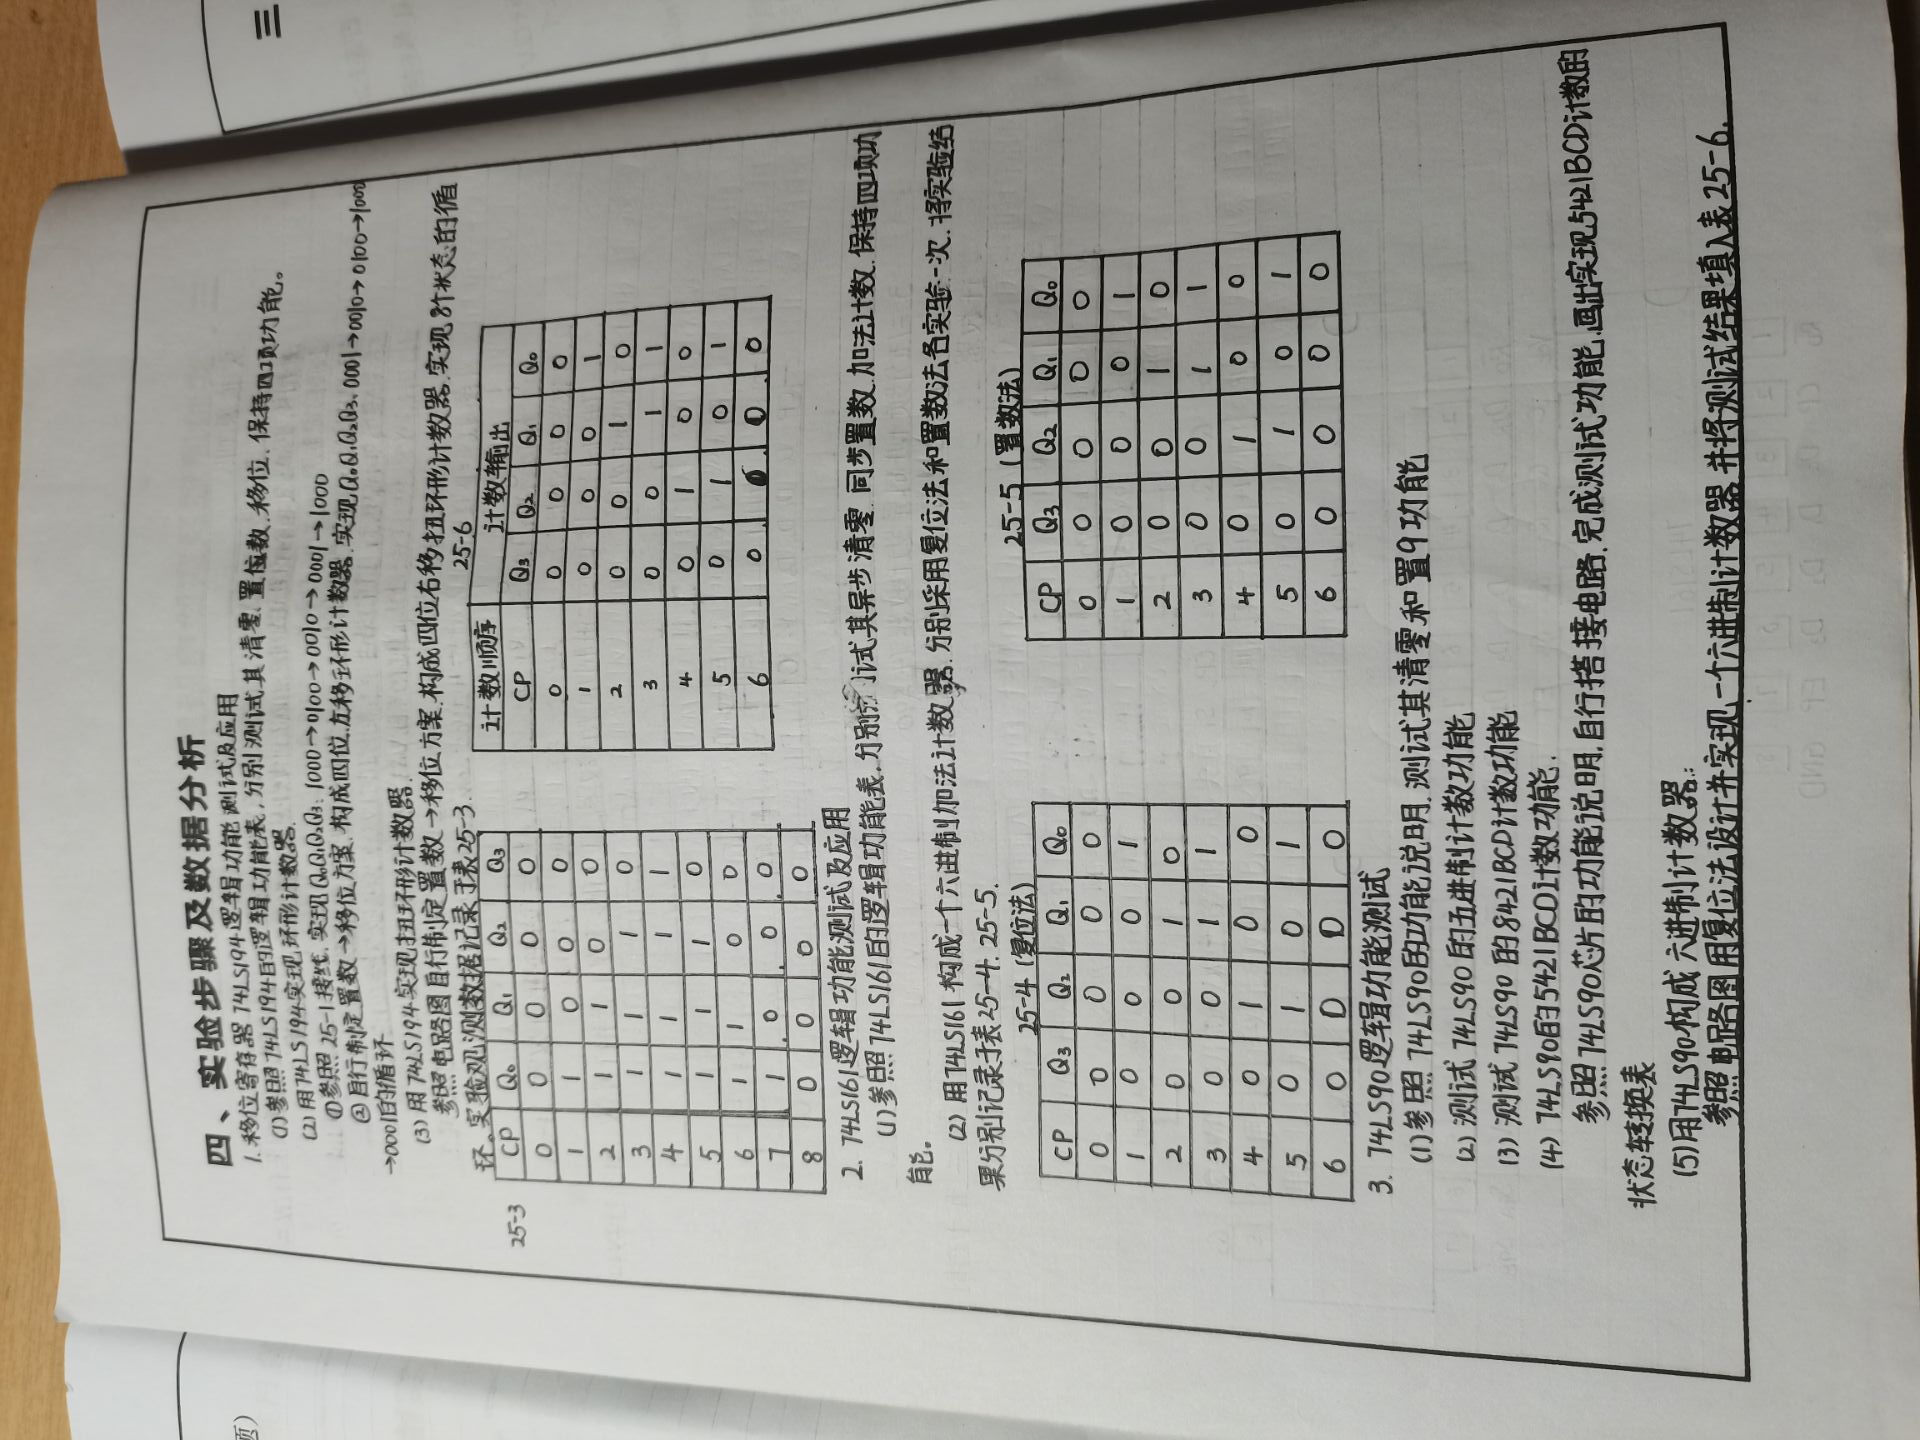 四、实验步骤及数据分析
1. 移位寄存器74LS194逻辑功能测试及应用
(1) 参照74LS194的逻辑功能表,分别测试其清零、置位数、移位、保持四项功能。
(2) 用74LS194实现环形计数器.
①参照25-1接线,实现Q₀Q₁Q₂Q₃: 1000→0100→0010→0001→1000
②自行制定置数→移位方案,构成四位左移环形计数器,实现Q₀Q₁Q₂Q₃、0001→0010→0100→1000
→0001的循环
(3) 用74LS194实现扭环形计数器.
参照电路图自行制定置数→移位方案.构成四位右移扭环形计数器.实现8个状态的循
环。实验观测数据记录于表25-3.
25-3
CP Q₀ Q₁ Q₂ Q₃
0 0 0 0 0
1 1 0 0 0
2 1 1 0 0
3 1 1 1 0
4 1 1 1 1
5 1 1 1 0
6 1 1 0 0
7 1 0 0 0
8 0 0 0 0
25-6
计数顺序 计数输出
CP Q₃ Q₂ Q₁ Q₀
0 0 0 0 0
1 0 0 0 1
2 0 0 1 0
3 0 0 1 1
4 0 1 0 0
5 0 1 0 1
6 0 0 0 0
2. 74LS161逻辑功能测试及应用
(1) 参照74LS161的逻辑功能表.分别测试其异步清零.同步置数.加法计数.保持四项功
能。
(2) 用74LS161构成一个六进制加法计数器.分别采用复位法和置数法各实验一次.将实验结
果分别记录于表25-4. 25-5.
25-4 (复位法)
CP Q₃ Q₂ Q₁ Q₀
0 0 0 0 0
1 0 0 0 1
2 0 0 1 0
3 0 0 1 1
4 0 1 0 0
5 0 1 0 1
6 0 0 0 0
25-5 (置数法)
CP Q₃ Q₂ Q₁ Q₀
0 0 0 0 0
1 0 0 0 1
2 0 0 1 0
3 0 0 1 1
4 0 1 0 0
5 0 1 0 1
6 0 0 0 0
3. 74LS90逻辑功能测试
(1) 参照74LS90的功能说明.测试其清零和置9功能
(2) 测试74LS90的五进制计数功能
(3) 测试74LS90的8421BCD计数功能
(4) 74LS90的5421BCD计数功能.
参照74LS90芯片的功能说明.自行搭接电路.完成测试功能.画出实现5421BCD计数的
状态转换表
(5) 用74LS90构成六进制计数器:
参照电路图用复位法设计并实现一个六进制计数器.并将测试结果填入表25-6.
三
题)